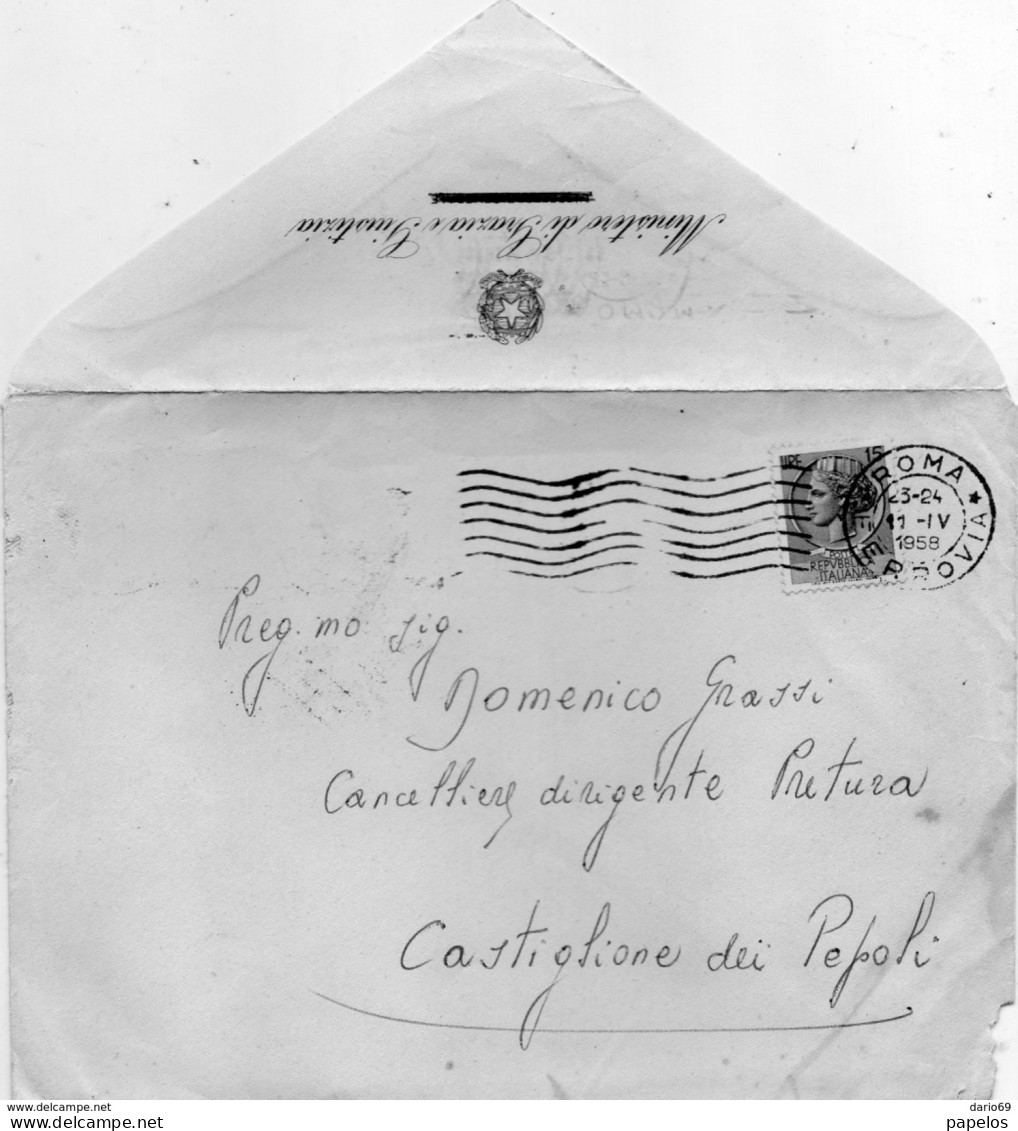 Ministero di Grazia e Giustizia
LIRE 15
POSTE
REPVBBLICA
ITALIANA
ROMA
23-24
11 -IV
1958
FERROVIA
Preg.mo sig.
Domenico Grassi
Cancelliere dirigente Pretura
Castiglione dei Pepoli
dario69
www.delcampe.net
papelos